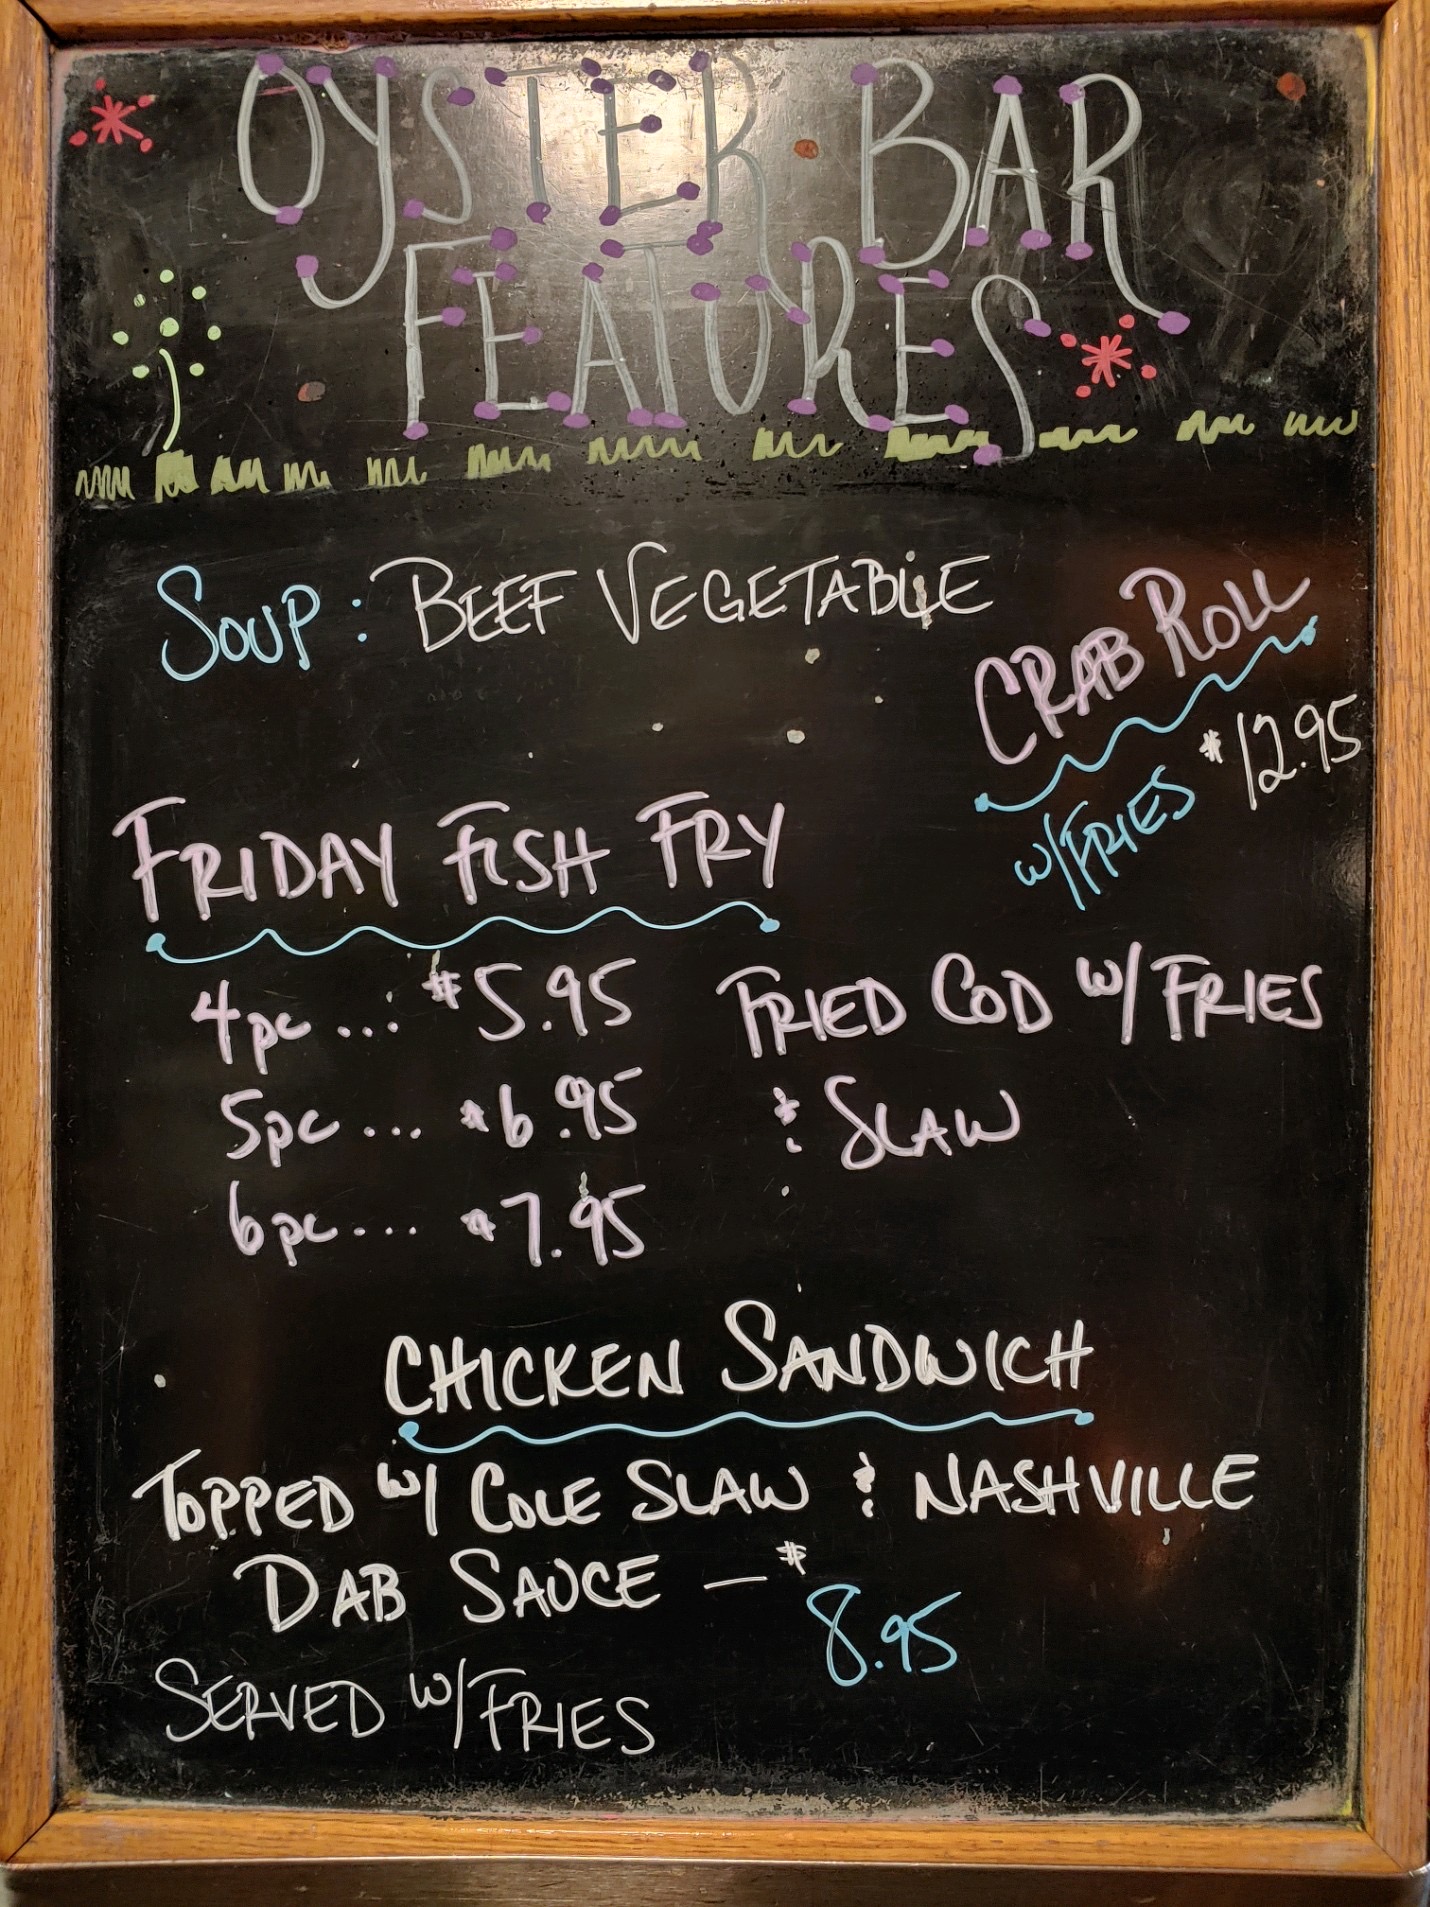 OYSTER BAR
FEATURES
SOUP: BEEF VEGETABLE
CRAB ROLL
w/FRIES $12.95
FRIDAY FISH FRY
4pc... $5.95
5pc... $6.95
6pc... $7.95
FRIED COD w/FRIES
& SLAW
CHICKEN SANDWICH
TOPPED w/ COLE SLAW & NASHVILLE
DAB SAUCE — $8.95
SERVED w/FRIES